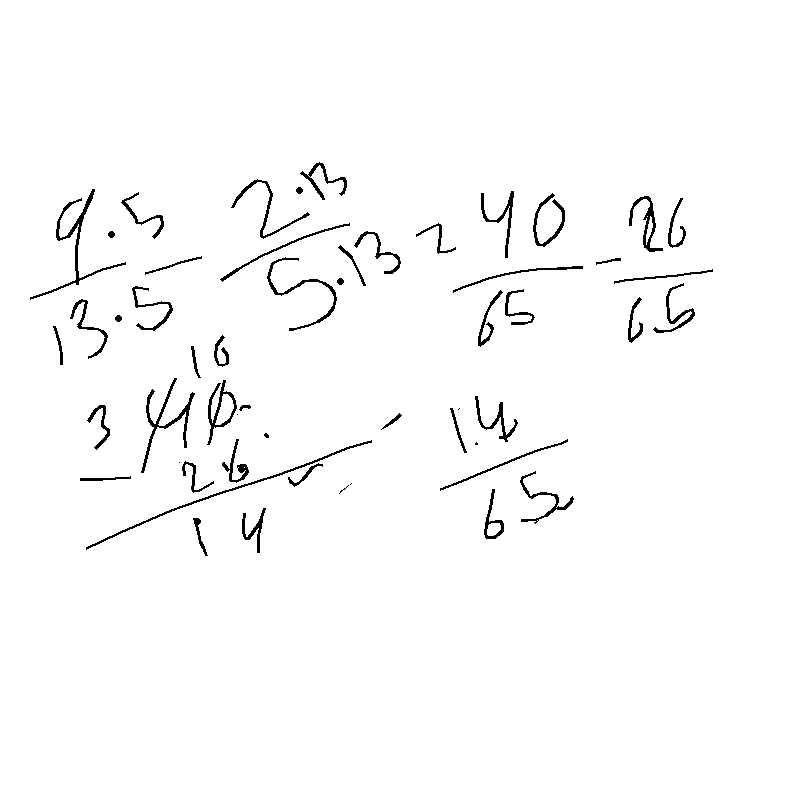 9·5/13·5 - 2·13/5·13 = 40/65 - 26/65
10
3 40
- 26
14
14/65